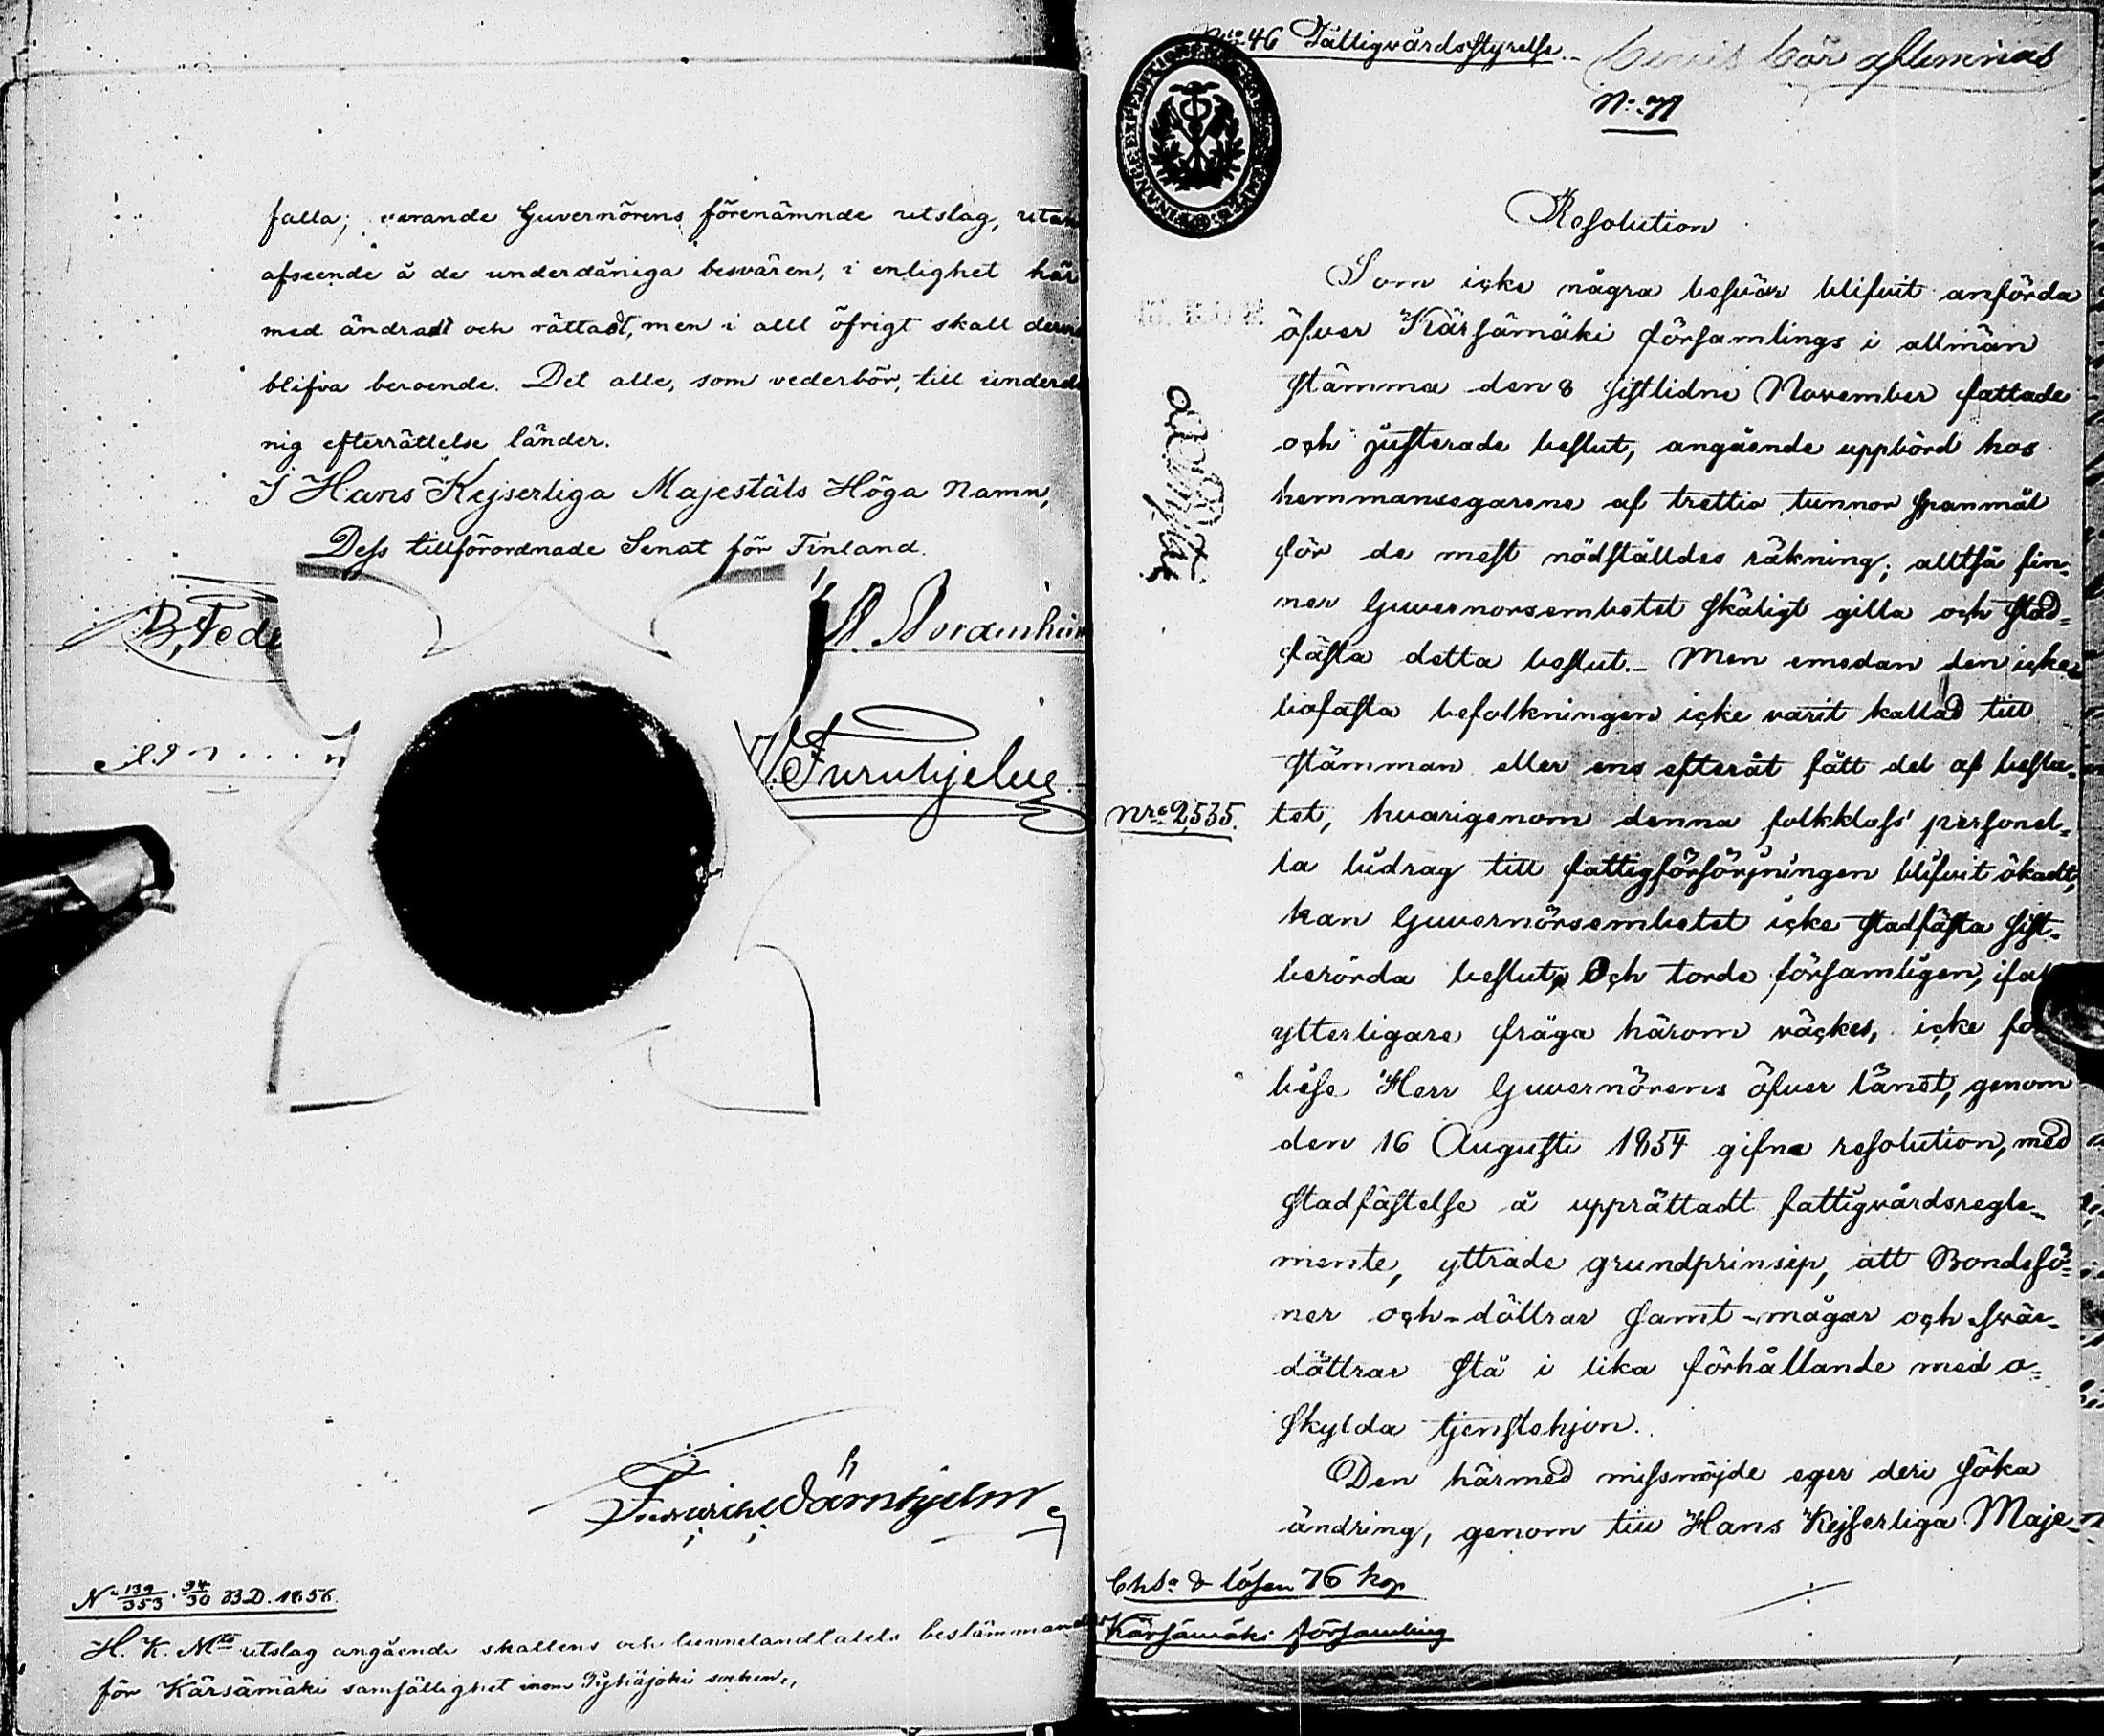 falla; varande Guvernörens förenämnde utslag, utan
afseende å de underdåniga besvären, i enlighet här
med ändradt och rättadt, men i allt öfrigt skall
blifva beroende. Det alle, som vederbör, till underdå
nig efterrättelse länder.
I Hans Kejserliga Majestäts Höga Namn,
Dess tillförordnade Senat för Finland.
B, Fede
Furuhjelm
N: 139/353 . 94/30 B.D. 1856.
H. K. Mts utslag angående skattens och tunnelandtalets bestämmande
för Kärsämäki samfällighet inom Pyhäjoki socken,,
Nro 46 Fattigvårdsstyrelse.
bevis bör aflemnas
N: 71
Resolution
Som icke några besvär blifvit anförda
öfver Kärsämäki församlings i allmän
stämma den 8 sistlidne November fattade
och justerade beslut, angående uppbörd hos
hemmansegarene af trettio tunnor spanmål
för de mest nödställdes räkning; alltså fin-
ner Guvernorsembetet skäligt gilla och stad-
fästa detta beslut. Men emedan den icke
bofasta befolkningen icke varit kallad till
stämman eller ens efteråt fått del af beslu-
nro 2,535.
tet, hvarigenom denna folkklass' personel-
la bidrag till fattigförsörjningen blifvit ökadt,
kan Guvernörsembetet icke stadfästa sist-
berörda beslut, Och torde församligen, ifall
ytterligare fråga härom väckes, icke för
bise Herr Guvernörens öfver länet, genom
den 16 Augusti 1854 gifne resolution, med
stadfästelse å upprättadt fattigvårdsregle-
mente, yttrade grundprinsip, att Bondesö-
ner och-döttrar samt-mågar och svär-
döttrar stå i lika förhållande med o-
skylda tjenstehjon.
Den härmed missnöjde eger deri söka
ändring, genom till Hans Kejserliga Maje-
Chs: & lösen 76 kop
Kärsämäki församling